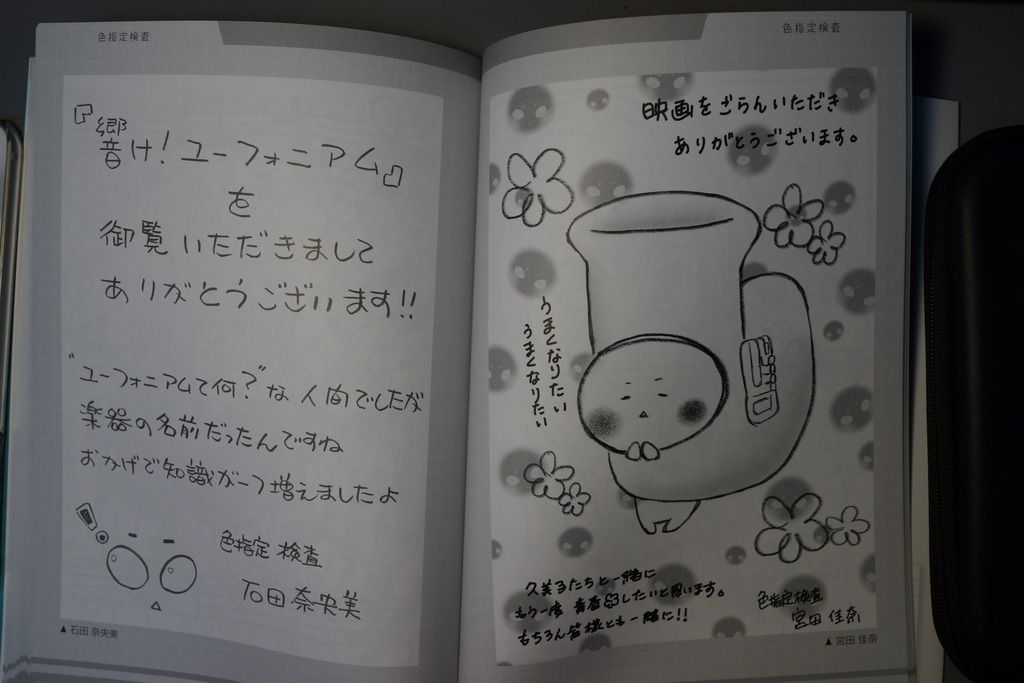 色指定検査
『響け！ユーフォニアム』
を
御覧いただきまして
ありがとうございます!!
"ユーフォニアムて何？"な人間でしたが
楽器の名前だったんですね
おかげで知識が一つ増えましたよ
色指定検査
石田奈央美
▲ 石田 奈央美
色指定検査
映画をごらんいただき
ありがとうございます。
うまくなりたい
うまくなりたい
久美子たちと一緒に
もう一度 青春したいと思います。
もちろん皆様とも一緒に!!
色指定検査
宮田 佳奈
▲ 宮田 佳奈